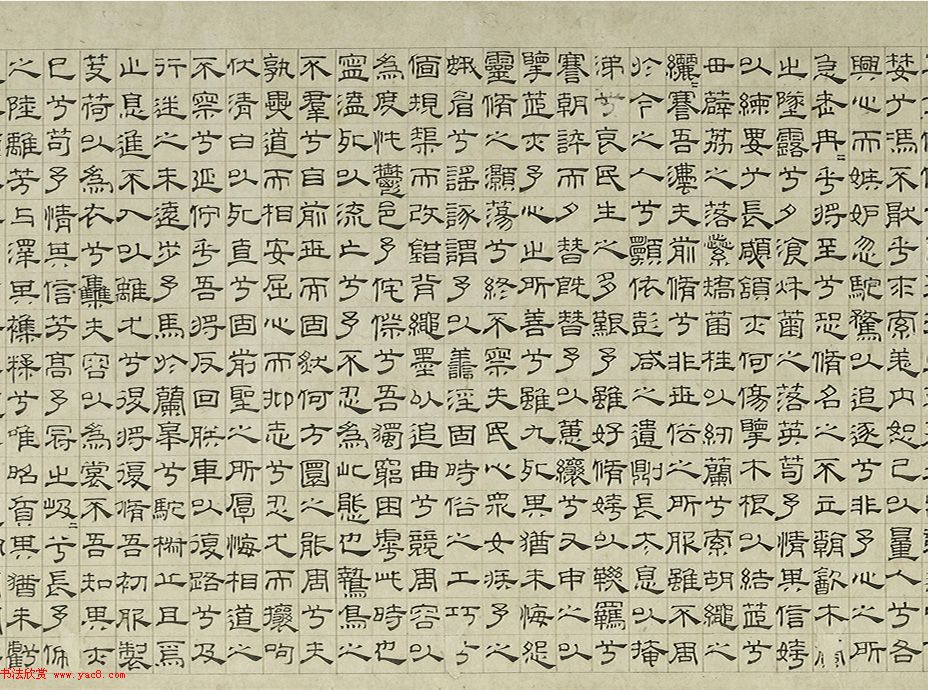 婪兮馮不猒乎求索羌内恕己以量人兮各
興心而嫉妒忽駝騖以追逐兮非予心之所
急老冉〻乎將至兮恐脩名之不立朝飲木
之墜露兮夕湌秋菊之落英苟予情其信姱
以練要兮長顑頷亦何傷擥木根以結茝兮
毌薜荔之落蘂矯菌桂以紉蘭兮索胡繩之
纚〻謇吾灋夫前脩兮非世俗之所服雖不周
於今之人兮願依彭咸之遺則長太息以掩
涕兮哀民生之多艱予雖好脩姱以鞿羈兮
謇朝誶而夕替既替予以蕙纕兮又申之以
擥茝亦予心之所善兮雖九死其猶未悔怨
靈脩之灝蕩兮終不察夫民心衆女疾予之
蛾眉兮謡諑謂予以善淫固時俗之工巧兮
偭規榘而改錯背繩墨以追曲兮競周容以
為度忳鬱邑予侘傺兮吾獨窮困虖此時也
寧溘死以流亡兮予不忍為此態也鷙鳥之
不羣兮自前世而固然何方圜之能周兮夫
孰異道而相安屈心而抑志兮忍尤而攘訽
伏清白以死直兮固前聖之所厚悔相道之
不察兮延佇乎吾將反回朕車以復路兮及
行迷之未遠步予馬於蘭皋兮駝椒丘且焉
止息進不入以離尤兮退將復脩吾初服製
芰荷以為衣兮集夫容以為裳不吾知其亦
已兮苟予情其信芳高予冠之岌〻兮長予佩
之陸離芳与澤其襍糅兮唯昭質其猶未虧
书法欣赏 www.yac8.com